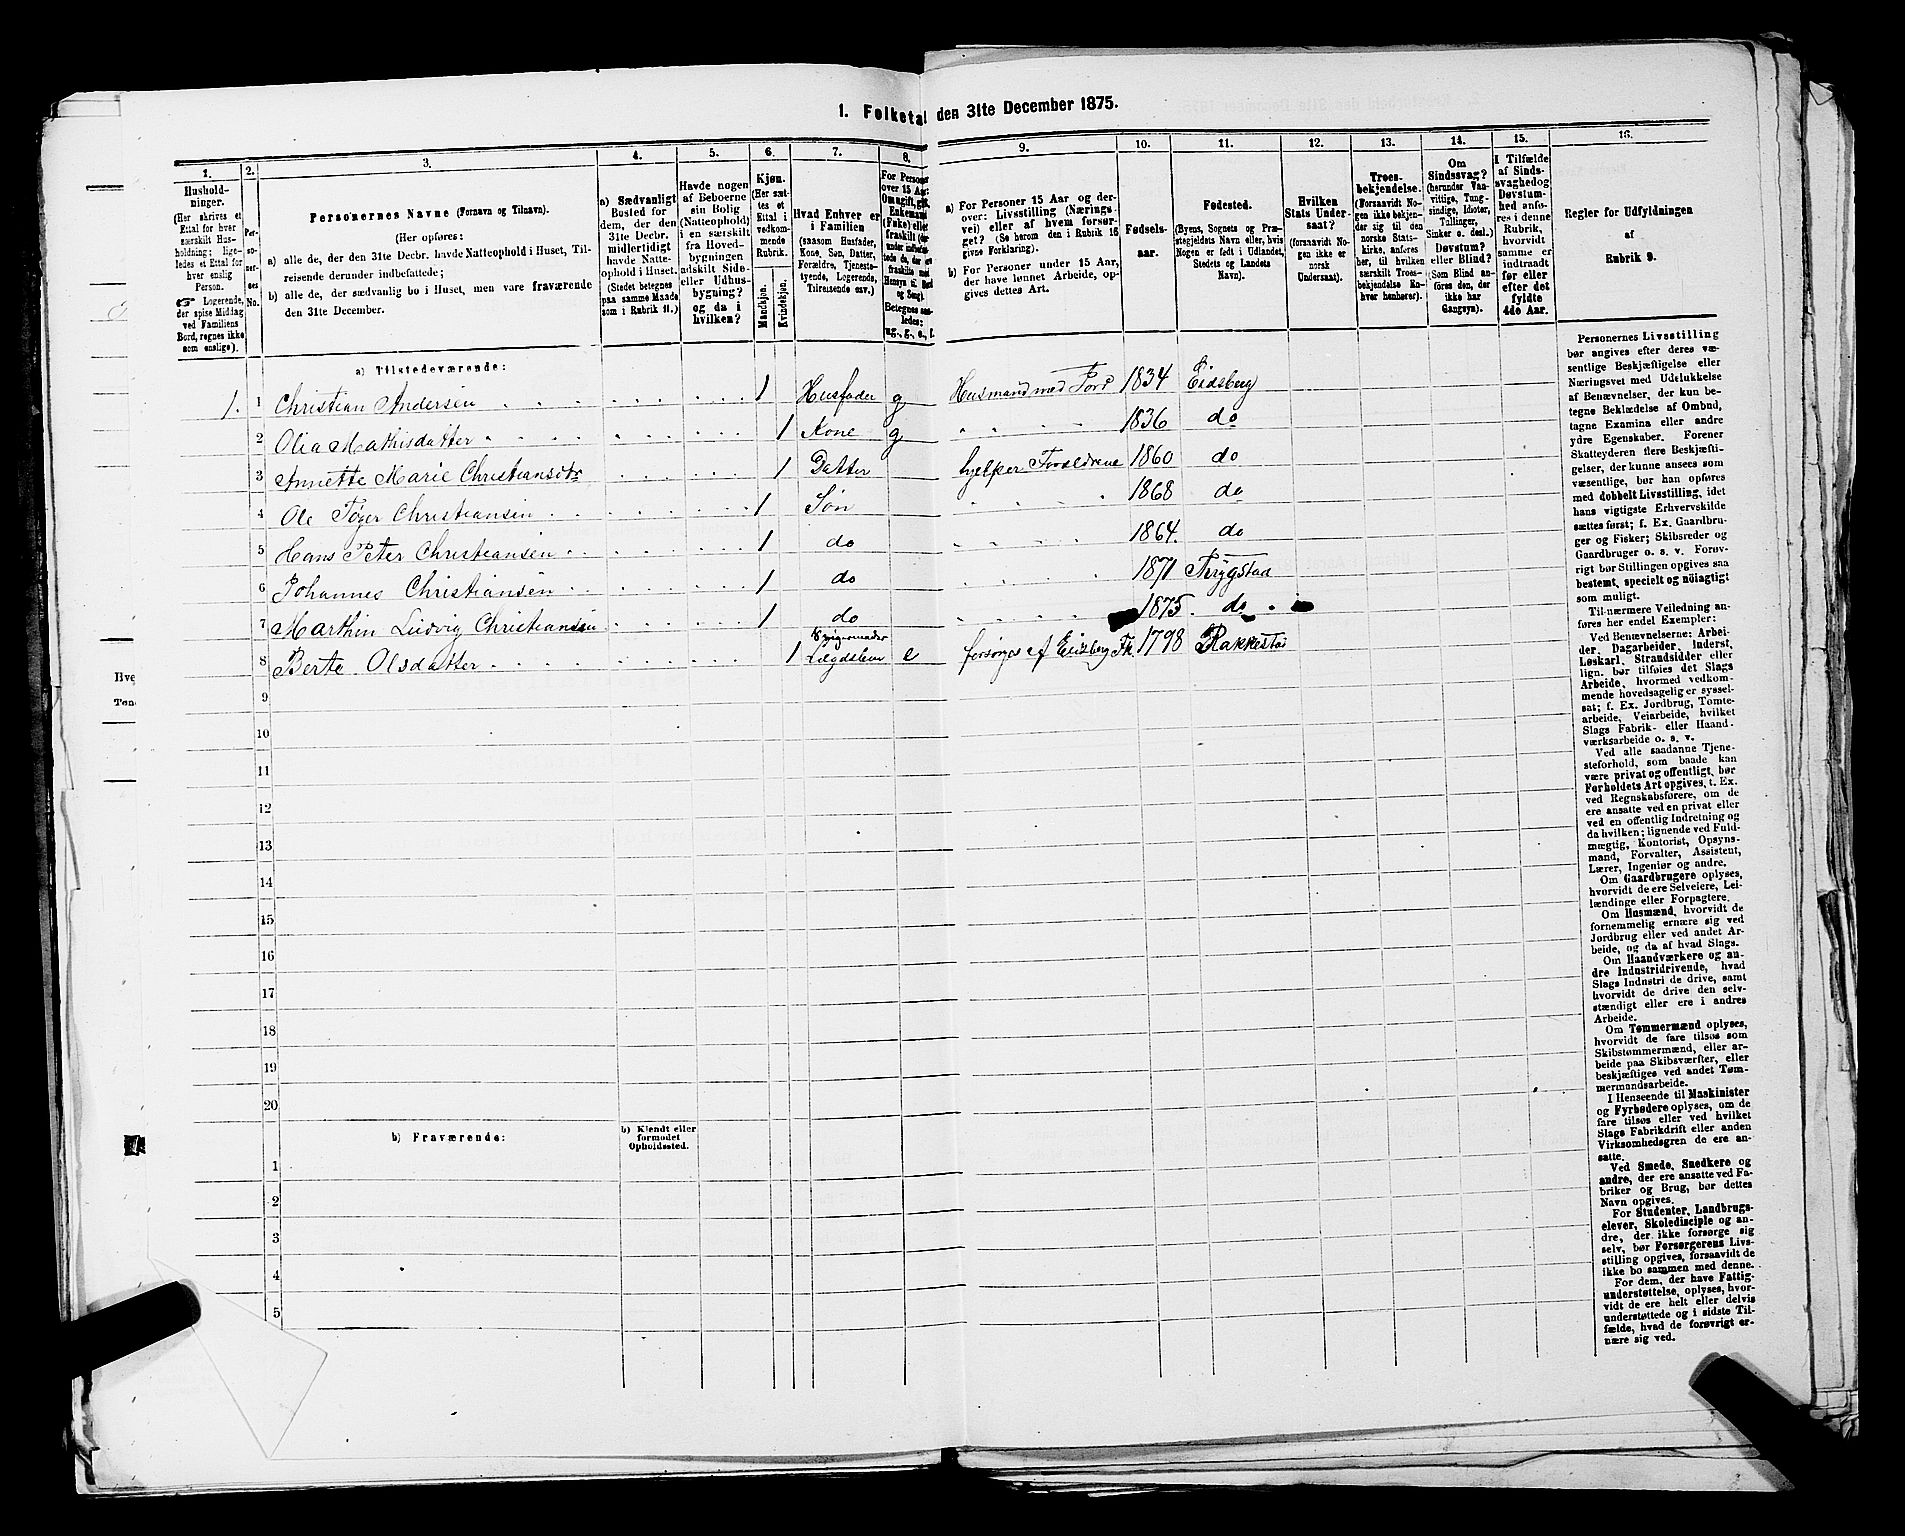 1. Folketal den 31te December 1875.
1.
2.
3.
4.
5.
6.
7.
8.
9.
10.
11.
12.
13.
14.
15.
16.
Hushold-
ninger.
(Her skrives et
Ettal for hver
særskilt Hus-
holdning; lige-
ledes et Ettal for
hver enslig
Person.
☞ Logerende,
der spise Middag
ved Familiens
Bord, regnes ikke
som enslige).
Per-
so-
ner-
nes
No.
Personernes Navne (Fornavn og Tilnavn).
(Her opføres:
a) alle de, der den 31te Decbr. havde Natteophold i Huset, Til-
reisende derunder indbefattede;
b) alle de, der sædvanlig bo i Huset, men vare fraværende
den 31te December.
a) Sædvanligt
Bosted for
dem, der den
31te Decbr.
midlertidigt
havde Natte-
ophold i Huset.
(Stedet betegnes
paa samme Maade
som i Rubrik 11.)
Havde nogen
af Beboerne
sin Bolig
(Natteophold)
i en særskilt
fra Hoved-
bygningen
adskilt Side-
eller Udhus-
bygning?
og da i
hvilken?
Kjøn.
(Her sæt-
tes et
Ettal i
vedkom-
mende
Rubrik.
Mandkjøn.
Kvindekjøn.
Hvad Enhver er
i Familien
(saasom Husfader,
Kone, Søn, Datter,
Forældre, Tjeneste-
tyende, Logerende,
Tilreisende osv.)
For Personer
over 15 Aar:
Om ugift, gift,
Enkemand
(Enke) eller
fraskilt
Betegnes saa-
ledes:
ug., g., e., f.
a) For Personer 15 Aar og der-
over: Livsstilling (Nærings-
vei) eller af hvem forsør-
get? (Se herom den i Rubrik 16
givne Forklaring).
b) For Personer under 15 Aar,
der have lønnet Arbeide, op-
gives dettes Art.
Fødsels-
aar.
Fødested.
(Byens, Sognets og Præ-
stegjeldets Navn eller, hvis
Nogen er født i Udlandet,
Stedets og Landets
Navn).
Hvilken
Stats Under-
saat?
(forsaavidt No-
gen ikke er
norsk
Undersaat).
Troes-
bekjendelse.
(Forsaavidt No-
gen ikke bekjen-
der sig til den
norske Stats-
kirke, anføres
her, til hvilken
særskilt Troes-
bekjendelse En-
hver henhører).
Om
Sindssvag?
(herunder Van-
vittige, Tung-
sindige, Idioter,
Tullinger,
Sinker o. desl.)
Døvstum?
eller Blind?
(Som Blind an-
føres den, der
ikke har
Gangsyn).
I Tilfælde
af Sinds-
svaghed og
Døvstum-
hed anfø-
res i denne
Rubrik,
hvorvidt
samme er
indtraadt
før eller
efter det
fyldte
4de Aar.
Regler for Udfyldningen
af
Rubrik 9.
a) Tilstedeværende:
1. 1 Christian Andersen 1 Husfader g Husmand med Jord 1834 Eidsberg
2 Olia Mathisdatter 1 Kone g 1836 do
3 Annette Marie Christiansdtr 1 Datter hjelper Forældrene 1860 do
4 Ole Tøger Christiansen 1 Søn 1868 do
5 Hans Peter Christiansen 1 do 1864. do
6 Johannes Christiansen 1 do 1871 Thrygstad
7 Marthin Ludvig Christiansen 1 do 1875. do
8 Berte Olsdatter 1 Lægdslem e forsørges af Eidsberg Fk 1798 Rakkestad
9
10
11
12
13
14
15
16
17
18
19
20
b) Fraværende:
b) Kjendt eller
formodet
Opholdssted.
1
2
3
4
5
Personernes Livsstilling
bør angives efter deres væ-
sentlige Beskjæftigelse eller
Næringsvei med Udelukkelse
af Benævnelser, der kun be-
tegne Beklædelse af Ombud,
tagne Examina eller andre
ydre Egenskaber. Forener
Skatteyderen flere Beskjæfti-
gelser, der kunne ansees som
væsentlige, bør han opføres
med dobbelt Livsstilling, idet
hans vigtigste Erhvervskilde
sættes først; f. Ex. Gaardbru-
ger og Fisker; Skibsreder og
Gaardbruger o. s. v. Forøv-
rigt bør Stillingen opgives saa
bestemt, specielt og nøiagtigt
som muligt.
Til nærmere Veiledning an-
føres her endel Exempler:
Ved Benævnelserne: Arbei-
der, Dagarbeider, Inderst,
Løskarl, Strandsidder eller
lign. bør tilføies det Slags
Arbeide, hvormed vedkom-
mende hovedsagelig er syssel-
sat; f. Ex. Jordbrug, Tomte-
arbeide, Veiarbeide, hvilket
Slags Fabrik- eller Haand-
værksarbeide o. s. v.
Ved alle saadanne Tjene-
steforhold, som baade kan
være privat og offentligt, bør
Forholdets Art opgives, t. Ex.
ved Regnskabsførere, om de
ere ansatte ved en privat eller
ved en offentlig Indretning og
da hvilken; lignende ved Fuld-
mægtig, Kontorist, Opsyns-
mand, Forvalter, Assistent,
Lærer, Ingeniør og andre.
Om Gaardbrugere oplyses,
hvorvidt de ere Selveiere, Lei-
lændinge eller Forpagtere.
Om Husmænd, hvorvidt de
fornemmelig ernære sig ved
Jordbrug eller ved andet Ar-
beide, og da af hvad Slags.
Om Haandværkere og an-
dre Industridrivende, hvad
Slags Industri de drive, samt
hvorvidt de drive den selv-
stændigt eller ere i andres
Arbeide.
Om Tømmermænd oplyses,
hvorvidt de fare tilsøs som
Skibstømmermænd, eller ar-
beide paa Skibsværfter, eller
beskjæftiges ved andet Tøm-
mermandsarbeide.
I Henseende til Maskinister
og Fyrbødere oplyses, om de
fare tilsøs eller ved hvilket
Slags Fabrikdrift eller anden
Virksomhedsgren de ere an-
satte.
Ved Smede, Snedkere og
andre, der ere ansatte ved Fa-
briker og Brug, bør dettes
Navn opgives.
For Studenter, Landbrugs-
elever, Skoledisciple og an-
dre, der ikke forsørge sig
selv, bør Forsørgerens Livs-
stilling opgives, forsaavidt de
ikke bo sammen med denne.
For dem, der have Fattig-
understøttelse, oplyses, hvor-
vidt de ere helt eller delvis
understøttede og i sidste Til-
fælde, hvad de forøvrigt er-
nære sig ved.